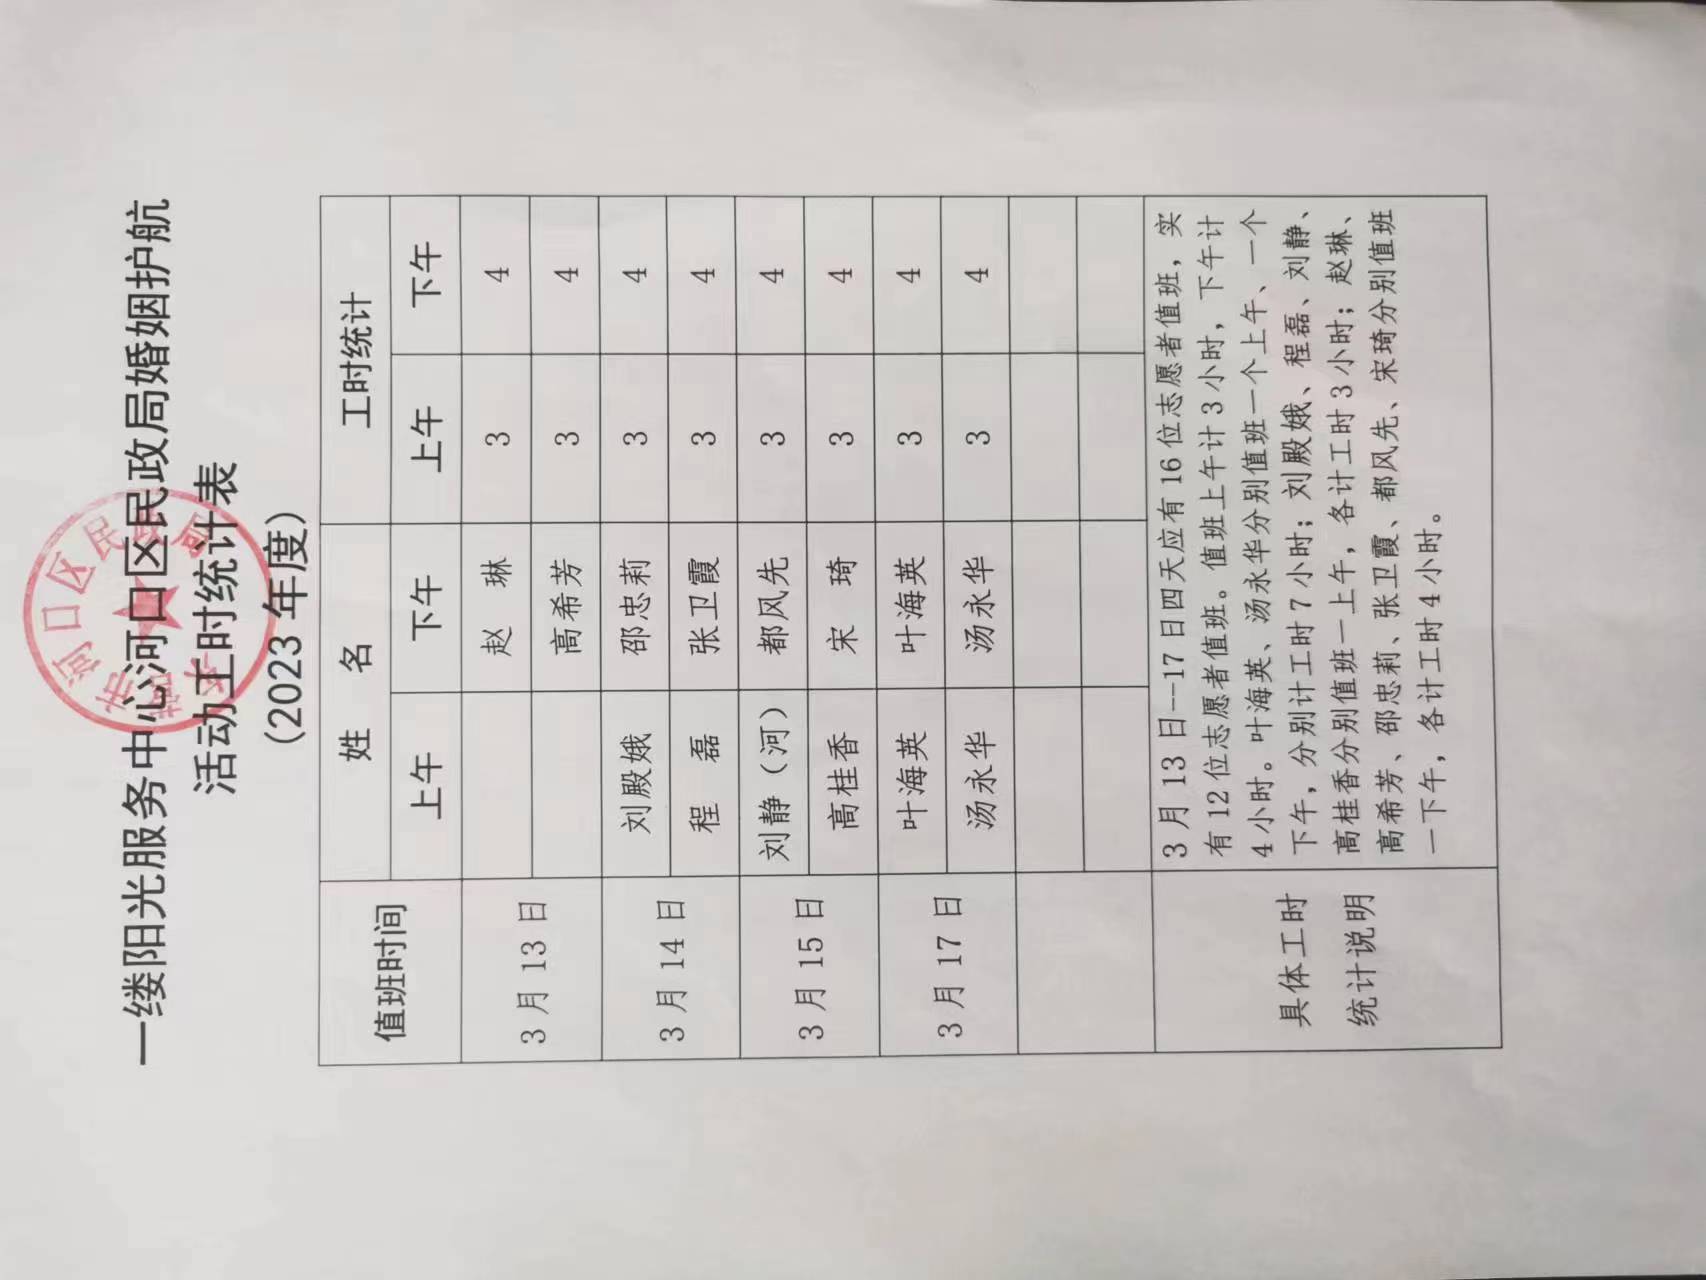 一缕阳光服务中心河口区民政局婚姻护航
活动工时统计表
（2023年度）
东营市河口区民政局
值班时间 姓 名 工时统计
上午 下午 上午 下午
3月13日 赵 琳 3 4
高希芳 3 4
3月14日 刘殿娥 邵忠莉 3 4
程 磊 张卫霞 3 4
3月15日 刘静（河） 都风先 3 4
高桂香 宋 琦 3 4
3月17日 叶海英 叶海英 3 4
汤永华 汤永华 3 4
具体工时
统计说明
3月13日--17日四天应有16位志愿者值班，实
有12位志愿者值班。值班上午计3小时，下午计
4小时。叶海英、汤永华分别值班一个上午、一个
下午，分别计工时7小时；刘殿娥、程磊、刘静、
高桂香分别值班一上午，各计工时3小时；赵琳、
高希芳、邵忠莉、张卫霞、都风先、宋琦分别值班
一下午，各计工时4小时。